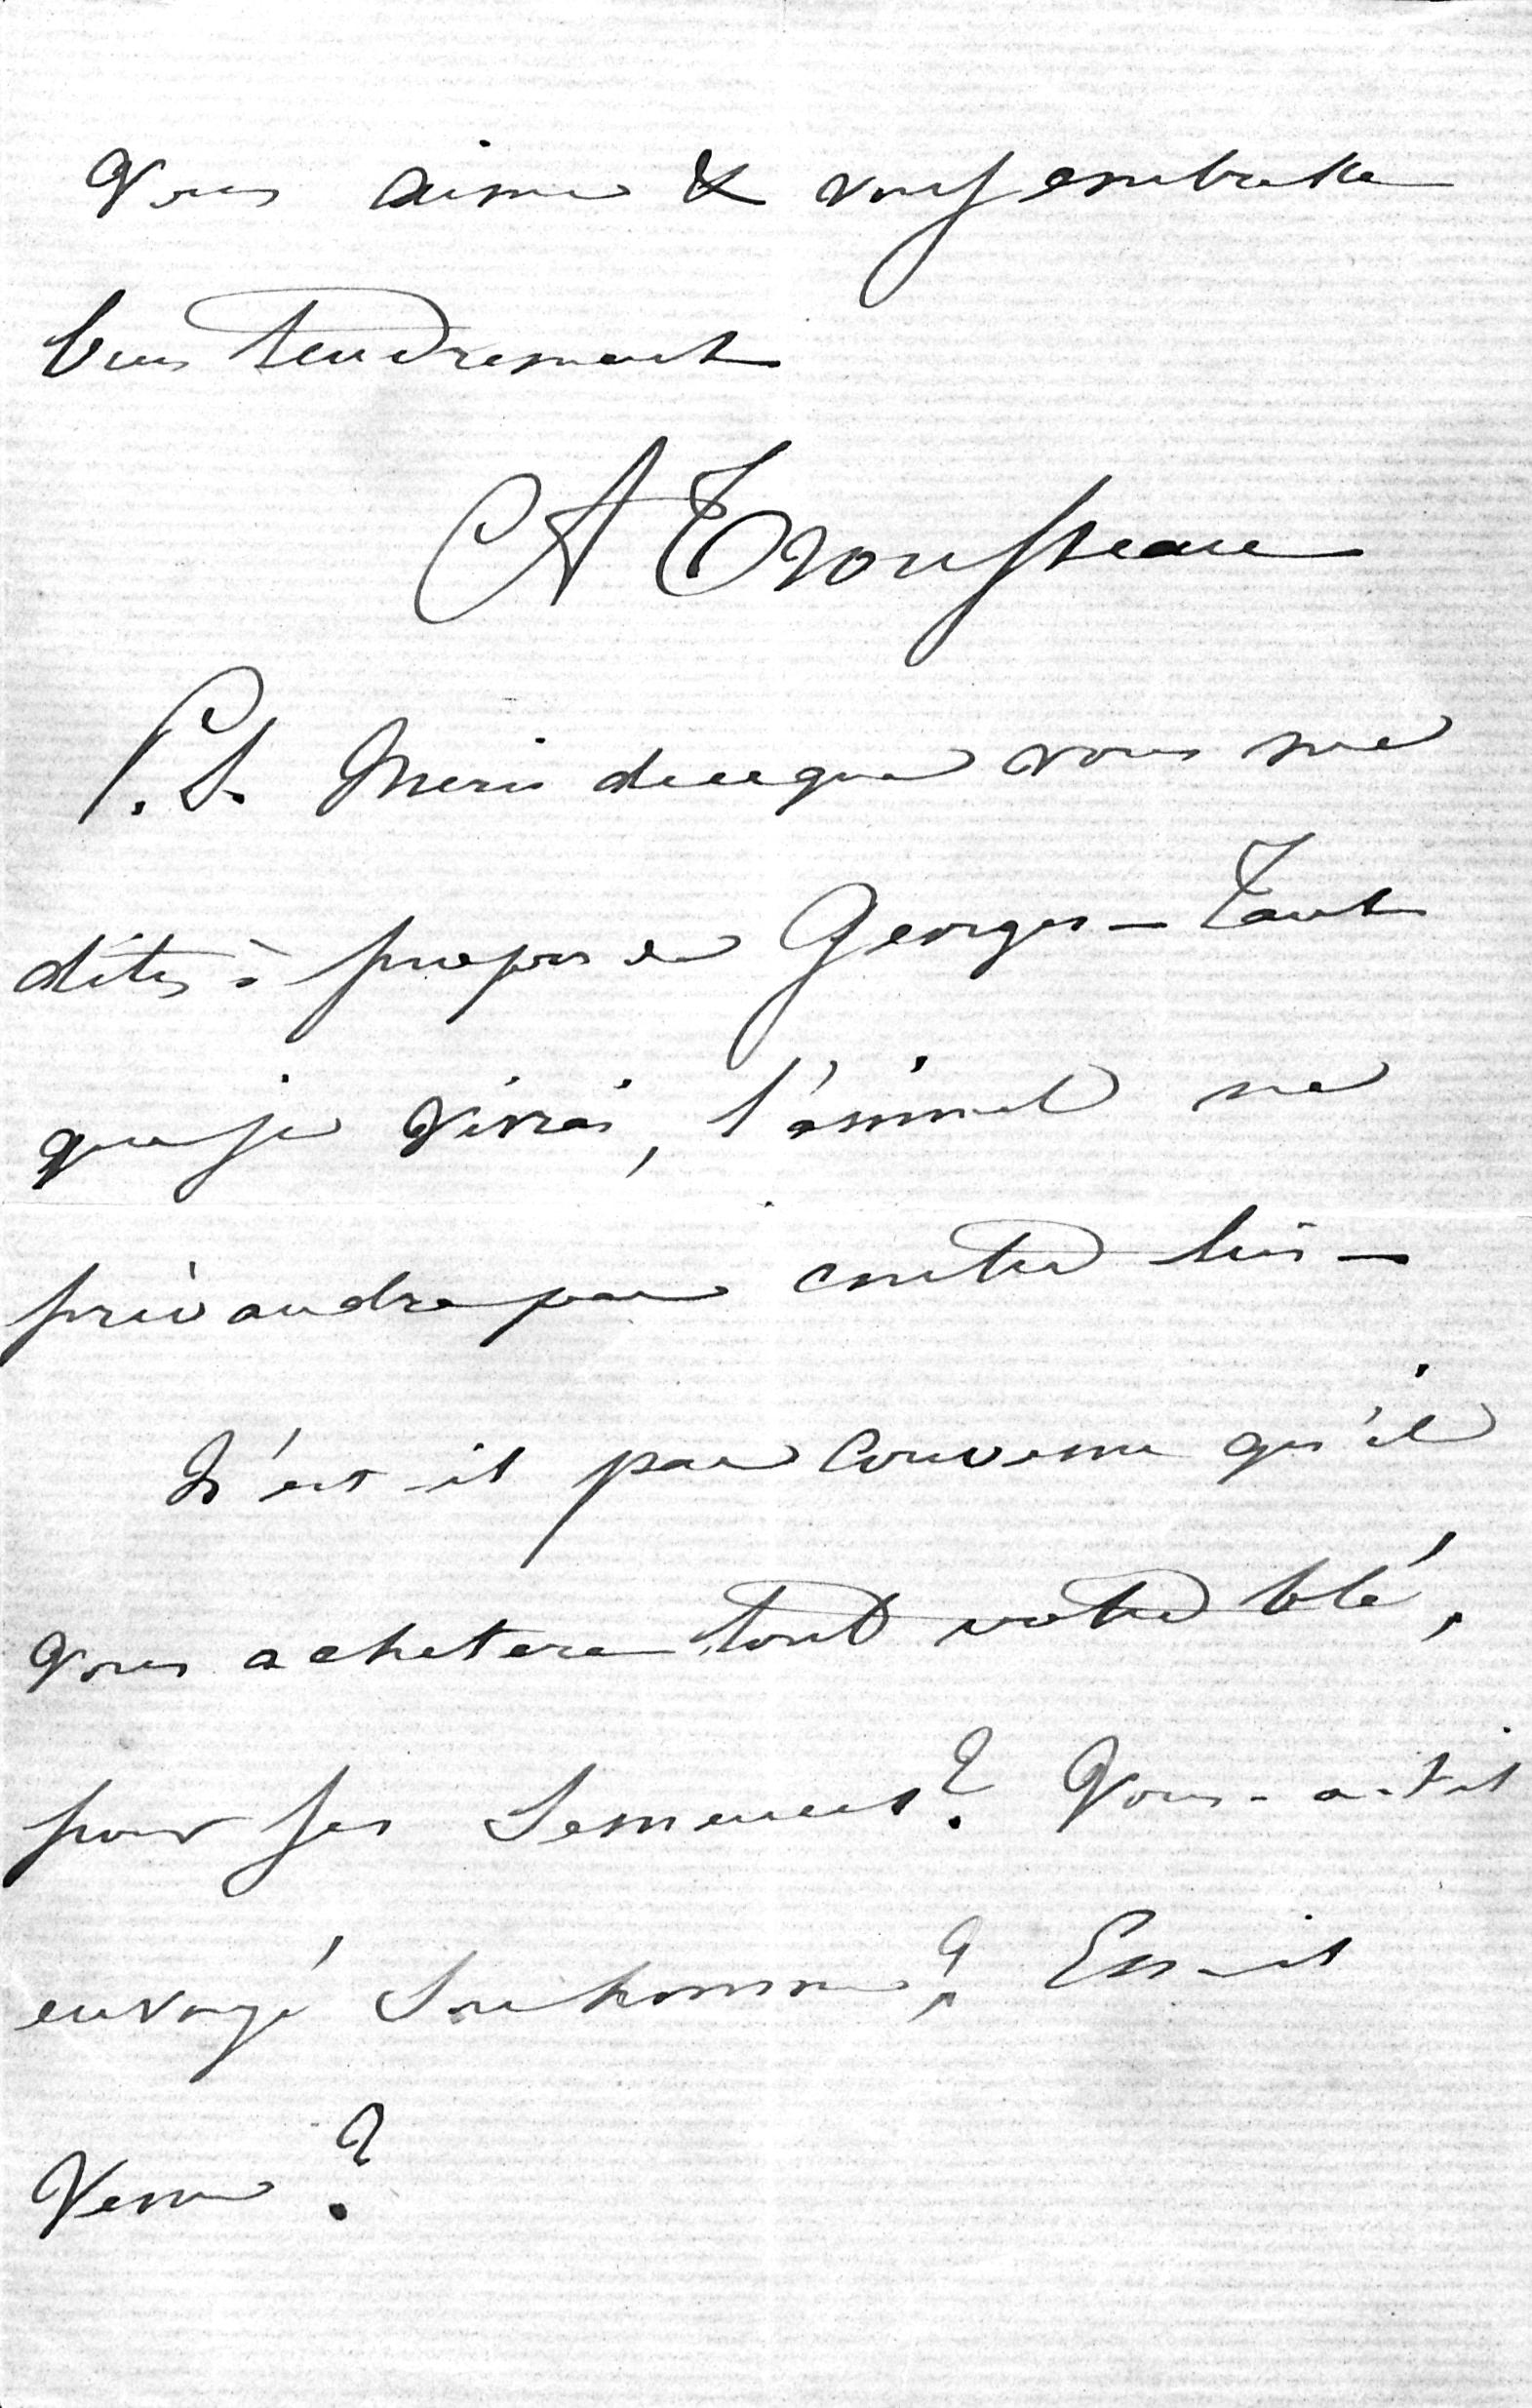 Vous aime & vous embrasse
bien tendrement
A Trousseau
P.S. Merci de ce que vous me
dites à propos de Georges – Tant
que je vivrai, l'animal ne
prévaudra pas contre lui –
N'est-il pas convenu qu'il
vous achetera tout votre blé,
pour ses semences? Vous-a-t-il
envoyé son homme? Est-il
Venu?